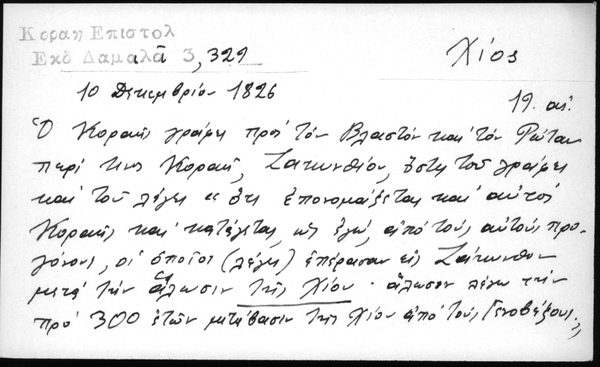 Κοραη Επιστολ
Εκδ Δαμαλᾶ 3, 329
Χίος
10 Δεκεμβρίου 1826
19. αἰ.
Ὁ Κοραῆς γράφει πρὸς τὸν Βλαστὸν καὶ τὸν Ρώταν
περί τινος Κοραῆ, Ζακυνθίου, ὅστις τοῦ γράφει
καὶ τοῦ λέγει "ὅτι ἐπονομάζεται καὶ αὐτὸς
Κοραῆς καὶ κατάγεται, ὡς ἐγώ, ἀπὸ τοὺς αὐτοὺς προ-
γόνους, οἱ ὁποῖοι (λέγει) ἐπέρασαν εἰς Ζάκυνθον
μετὰ τὴν ἅλωσιν τῆς Χίου. ἅλωσιν λέγω τὴν
πρὸ 300 ἐτῶν μετάβασιν τῆς Χίου ἀπὸ τοὺς Γενοβέζους."